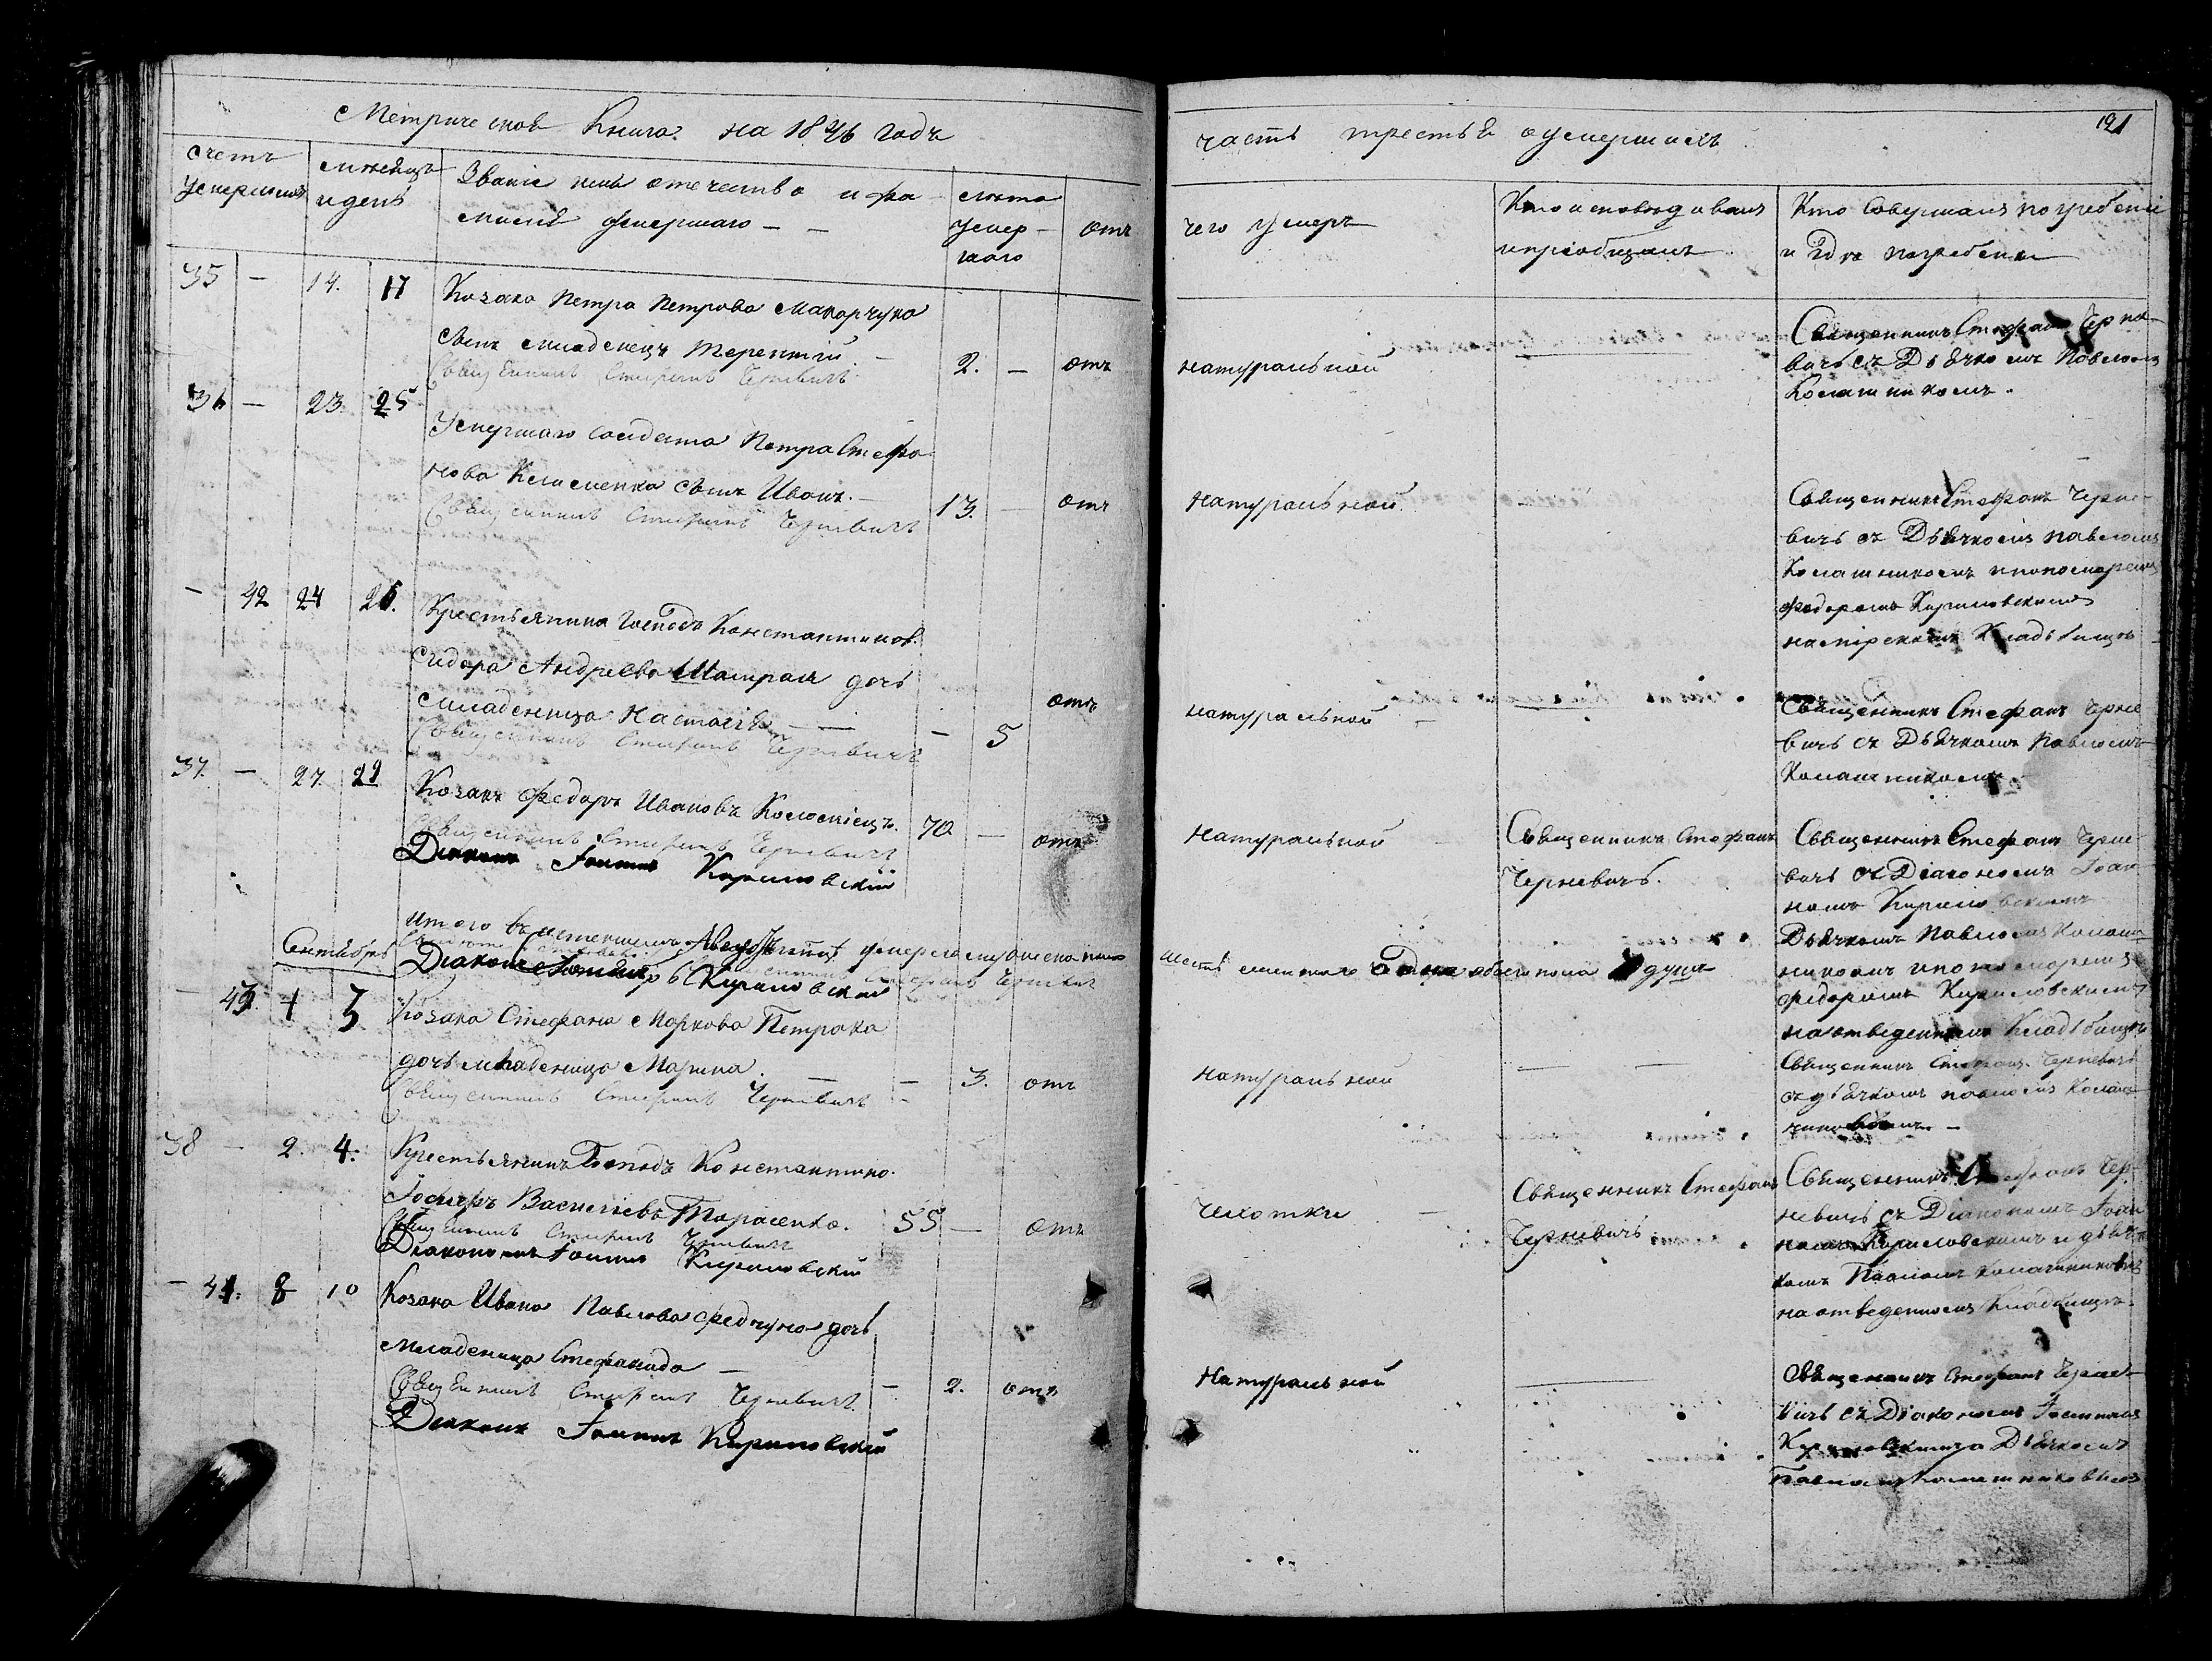 Метрической Книги на 1846 годъ
Счетъ умершихъ
мѣсяцъ и день
Званіе имя отечество и фамилія умершаго
лѣта умершаго
отъ
35 — 14. 17
Козака Петра Петрова Макарчука
сынъ младенецъ Терентій. — 2. — отъ
Священникъ Стефанъ Черневичъ
36 — 23. 25
Умершаго солдата Петра Стефанова
Клименка сынъ Иванъ. — 13. — отъ
Священникъ Стефанъ Черневичъ
— 42 24 26.
Крестьянина Господъ Константинов.
Сидора Андреева дочь
младеница Настасія — — 5 отъ
Священникъ Стефанъ Черневичъ
37. — 27. 29
Козакъ Федоръ Ивановъ Коломіецъ. 70 — отъ
Священникъ Стефанъ Черневичъ
Діаконъ Іоаннъ Кириловскій
итого въ истекшемъ Августѣ умерло мужеска пола
Діаконъ Іоаннъ Кириловскій
Сентябрь
— 43. 1 3
Козака Стефана Маркова Петрака
дочь младеница Марина. — — 3. отъ
Священникъ Стефанъ Черневичъ
38 — 2. 4.
Крестьянинъ Господъ Константино.
Іосифъ Васильевъ Тарасенко. 55 — отъ
Священникъ Стефанъ Черневичъ
Діаконъ Іоаннъ Кириловскій
— 44. 8 10
Козака Ивана Павлова Федчука дочь
младеница Стефанида — — 2. отъ
Священникъ Стефанъ Черневичъ
Діаконъ Іоаннъ Кириловскій
часть третья о умершихъ
121
чего умеръ
Кто исповѣдывалъ и пріобщалъ
Кто совершалъ погребеніе
и гдѣ погребены
натуральной —
Священникъ Стефанъ Черневичъ
съ Дьячкомъ Павломъ
натуральной
Священникъ Стефанъ Черневичъ
съ Дьячкомъ Павломъ
и пономаремъ
Федоромъ Кириловскимъ
кладбищѣ
натуральной —
Священникъ Стефанъ Черневичъ
съ Дьячкомъ Павломъ
натуральной
Священникъ Стефанъ
Черневичъ.
Священникъ Стефанъ Черневичъ
съ Діакономъ Іоанномъ
Кириловскимъ
Дьячкомъ Павломъ
и пономаремъ
Федоромъ Кириловскимъ
на отведенномъ Кладбищѣ
обоего пола 7 душъ
натуральной — —
Священникъ Стефанъ Черневичъ
съ дьячкомъ Павломъ
Чахотки —
Священникъ Стефанъ
Черневичъ
Священникъ Стефанъ Черневичъ
съ Діакономъ Іоанномъ
Кириловскимъ и дьячкомъ
Павломъ
на отведенномъ Кладбищѣ.
Натуральной —
Священникъ Стефанъ Черневичъ
съ Діакономъ Іоанномъ
Кириловскимъ Дьячкомъ
Павломъ